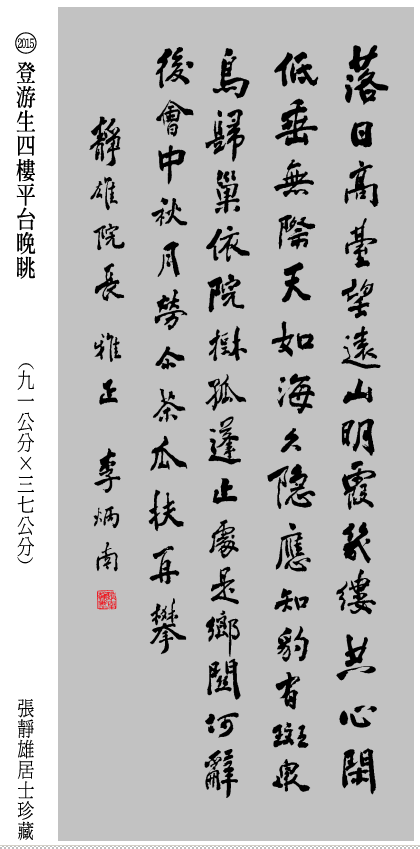 落日高臺望遠山明霞幾縷共心閑
低垂無際天如海久隐應知豹有斑衆
鳥歸巢依院樹孤蓬止處是鄉關何辭
後會中秋月勞尒茶瓜扶再攀
靜雄院長雅正 李炳南
2015 登游生四樓平台晚眺 （九一公分×三七公分） 張靜雄居士珍藏